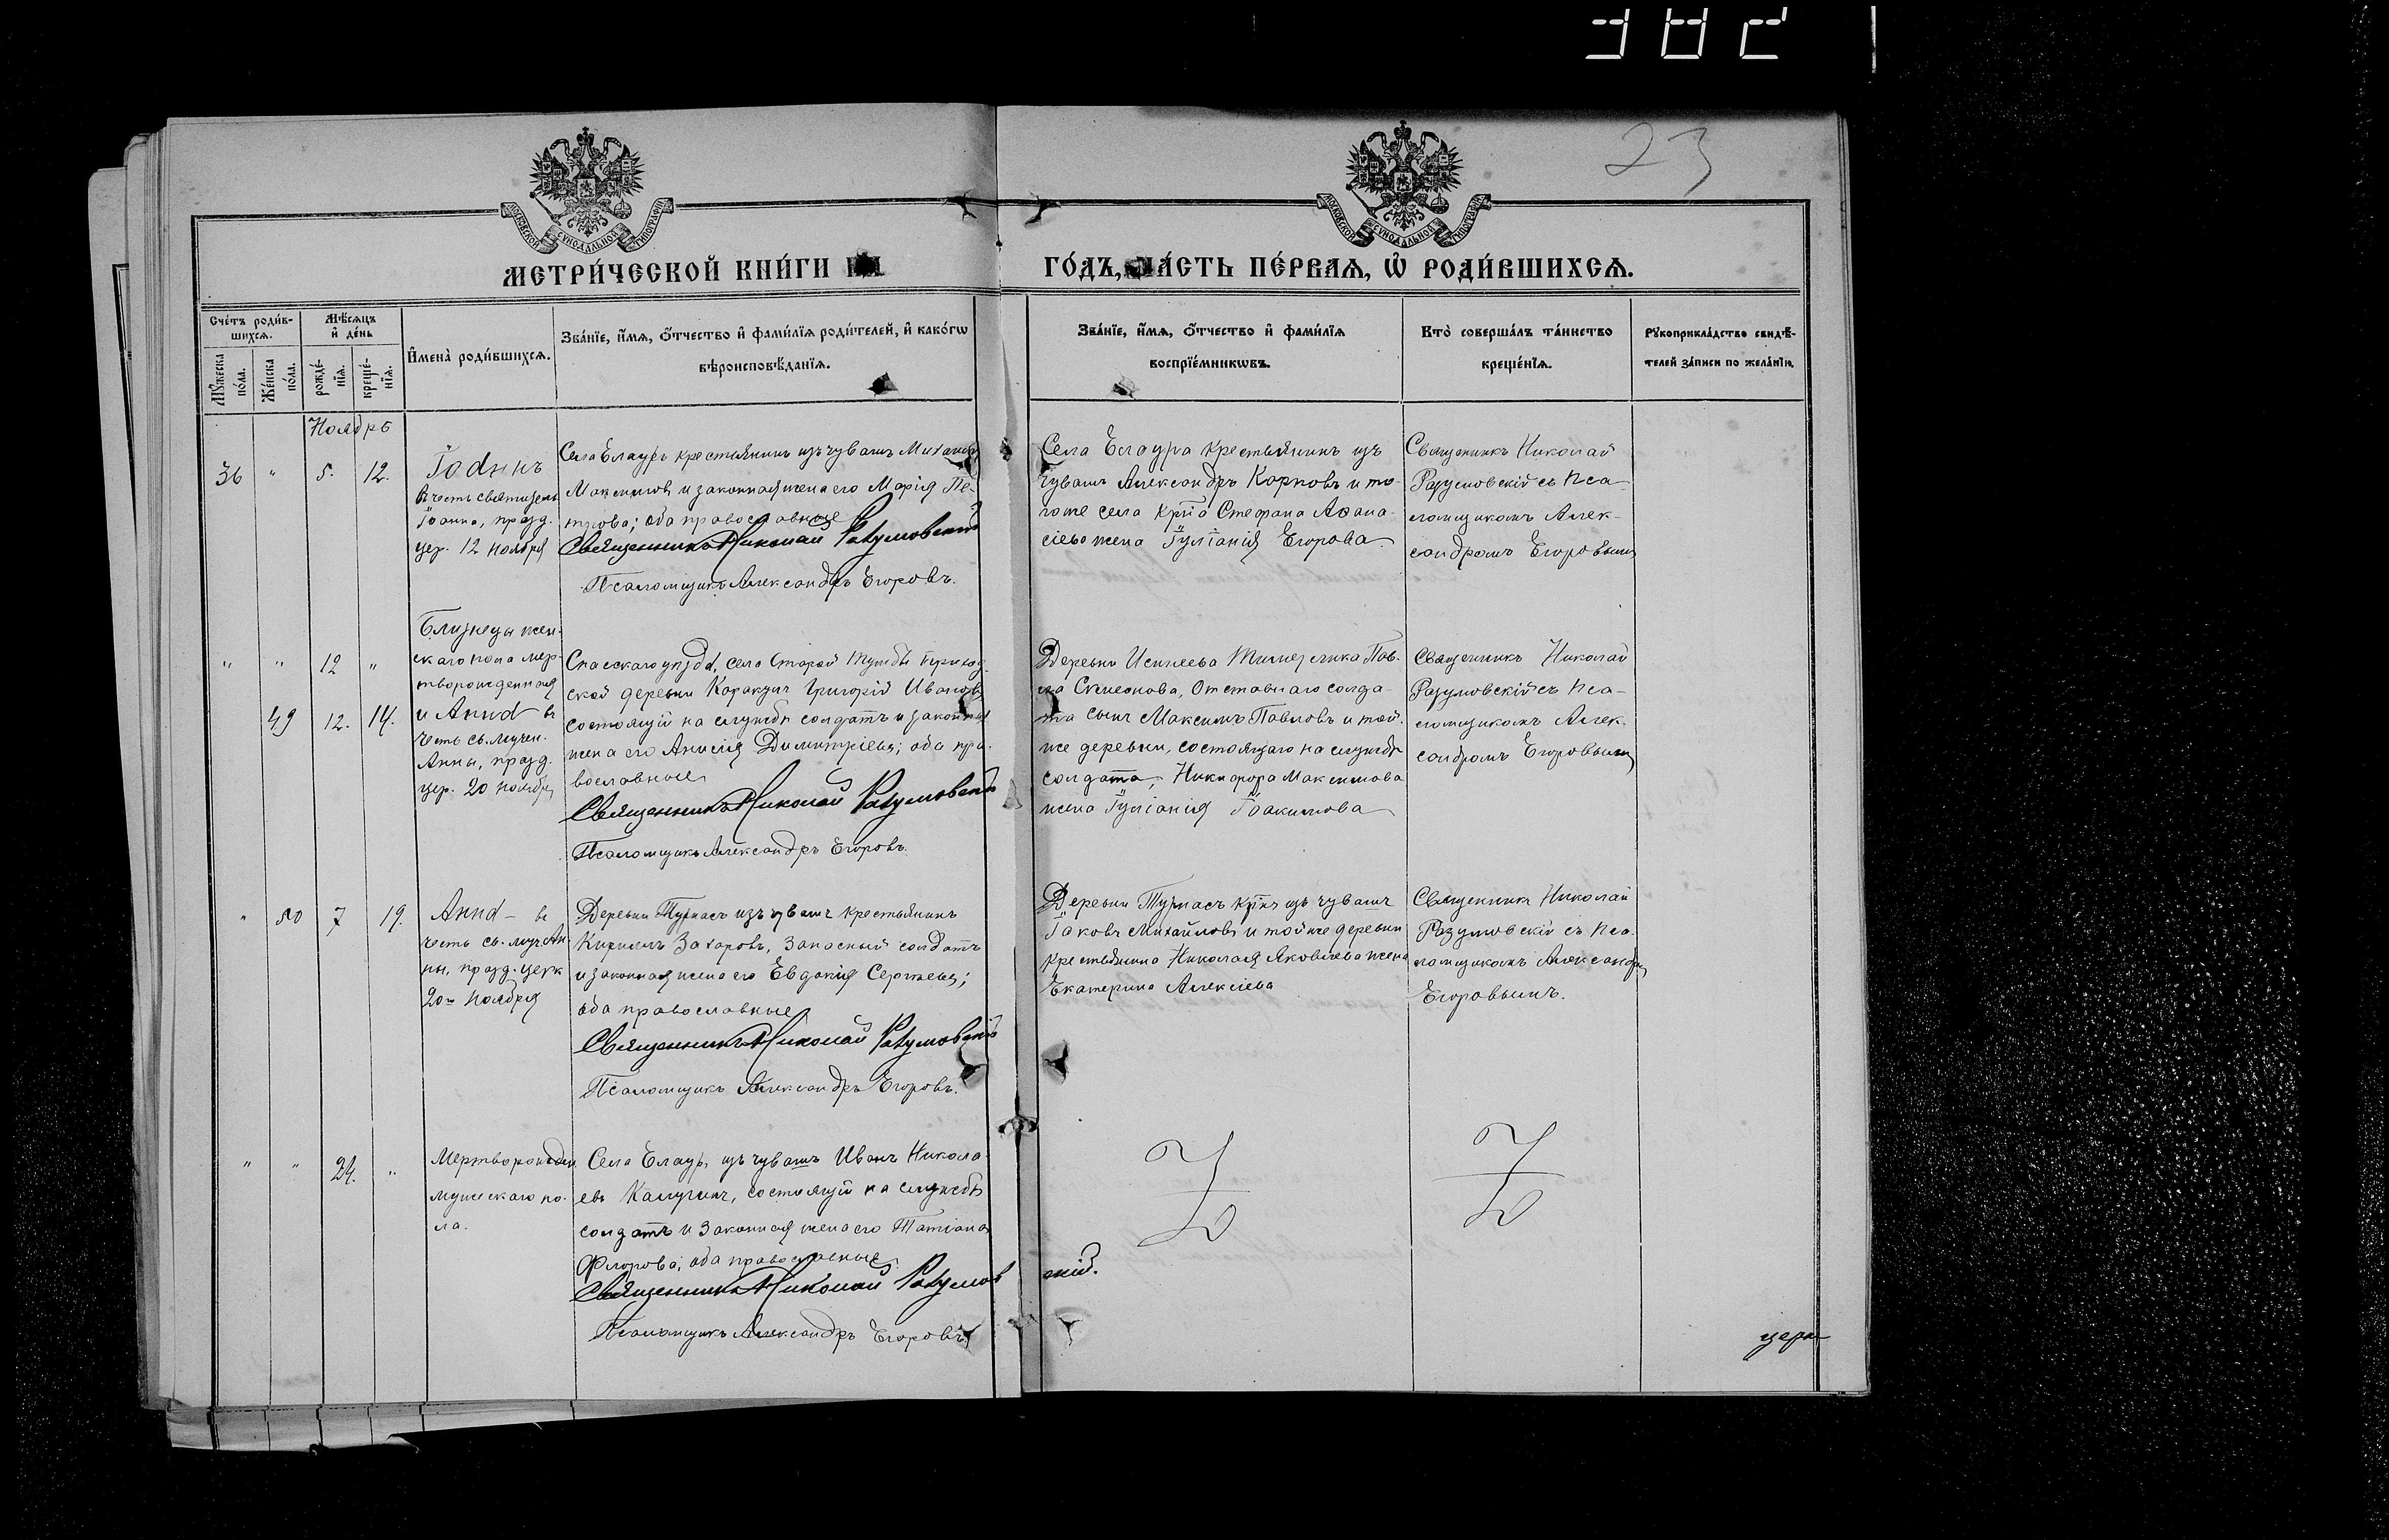 23
МЕТРИ́ЧЕСКОЙ КНИ́ГИ
ГО́ДЪ, ЧА́СТЬ ПЕ́РВАѦ, Ѡ҆ РОДИ́ВШИХСѦ.
Сче́тъ роди́в-
шихсѧ.
Мѣ́сѧцъ
и҆ де́нь
Мꙋ́жеска по́ла.
Же́нска по́ла.
рожде́-
нїѧ.
креще́-
нїѧ.
И҆мена̀ роди́вшихсѧ.
Зва́нїе, и҆́мѧ, ѻ҆́тчество и҆ фами́лїѧ роди́телей, и҆ како́гѡ
вѣроисповѣ́данїѧ.
Зва́нїе, и҆́мѧ, ѻ҆́тчество и҆ фами́лїѧ
воспрїе́мникѡвъ.
Кто̀ соверша́лъ та́инство
креще́нїѧ.
Рꙋкоприкла́дство свидѣ́-
телей за́писи по жела́нїю.
Ноябрь
36 " 5. 12.
Іоаннъ
въ честь святителя
Іоанна, празд.
цер. 12 Ноября
Села Елауръ крестьянинъ изъ чувашъ Михаилъ
Максимовъ и законная жена его Марія Пе-
трова; оба православные
Священникъ Николай Разумовскій
Псаломщикъ Александръ Егоровъ.
Села Елаура крестьянинъ изъ
чувашъ Александръ Карповъ и то-
гоже села крⷭ҇на Стефана Аѳана-
сіева жена Іуліанія Егорова
Священникъ Николай
Разумовскій съ Пса-
ломщикомъ Алек-
сандромъ Егоровымъ
" " 12 "
49 12. 14.
Близнецы жен-
скаго пола мер-
творожденная
и Анна въ
честь св. мучен.
Анны, празд.
цер. 20 ноября
Спасскаго уѣзда, села Старой Тумбы приход-
ской деревни Каракузи Григорій Ивановъ
состоящій на службѣ солдатъ и законная
жена его Анисія Димитріева; оба пра-
вославные
Священникъ Николай Разумовскій
Псаломщикъ Александръ Егоровъ.
Деревни Павла Симеонова, Отставнаго солда-
та сынъ Максимъ Павловъ и той-
же деревни, состоящаго на службѣ
солдата, Никифора Максимова
жена Іуліанія Іоакимова
Священникъ Николай
Разумовскій съ Пса-
ломщикомъ Алек-
сандромъ Егоровымъ
" 50 7 19.
Анна - въ
честь св. муч. Ан-
ны, празд. церк
20го Ноября
Деревни Турнасъ изъ чувашъ крестьянинъ
Кириллъ Захаровъ, запасный солдатъ
и законная жена его Евдокія Сергѣева;
оба православные
Священникъ Николай Разумовскій
Псаломщикъ Александръ Егоровъ.
Деревни Турнасъ крⷭ҇нъ изъ чувашъ
Іаковъ Михайловъ и тойже деревни
крестьянина Николая Яковлева жена
Екатерина Алексіева
Священникъ Николай
Разумовскій съ Пса-
ломщикомъ Александр.
Егоровымъ.
" " 24. "
Мертворожден.
мужескаго по-
ла.
Села Елауръ, изъ чувашъ Иванъ Никола-
евъ Калугинъ, состоящій на службѣ
солдатъ и законная жена его Татіана
Флорова; оба православные.
Священникъ Николай Разумовскій.
Псаломщикъ Александръ Егоровъ
цери